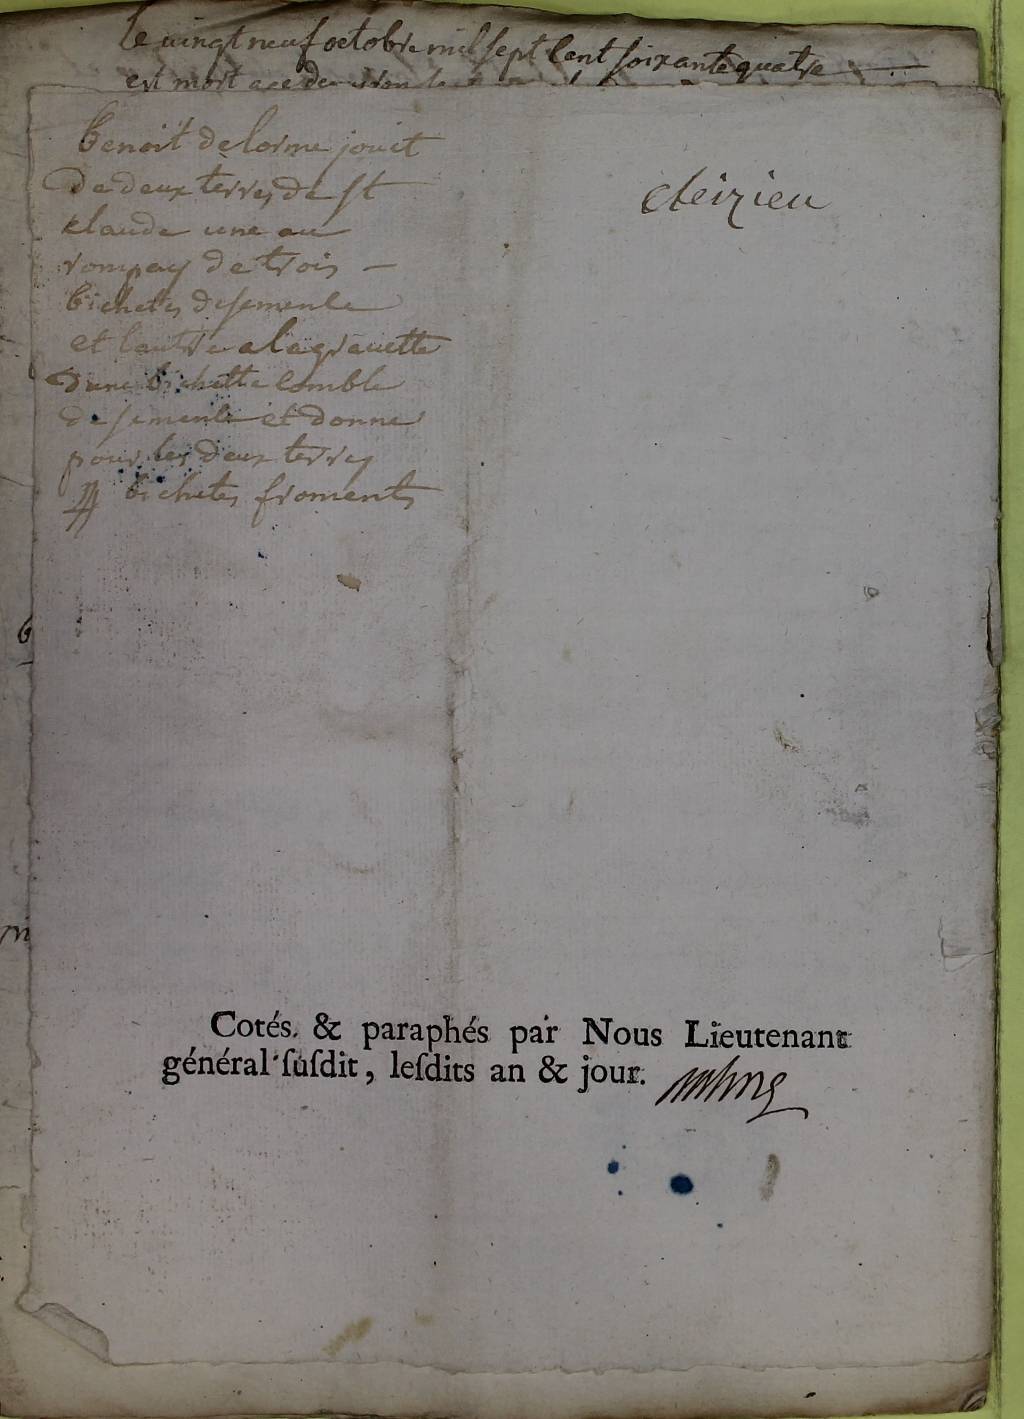 le vingt neuf octobre mil sept cent soixante quatre
est mort age de
benoit delorme jouit
de deux terres de st
claude une au
rompay de trois
bichetes de semence
et lautre a la grauette
dune bichette comble
de semence et donne
pour les deux terres
bichetes froments
cleizieu
Cotés & paraphés par Nous Lieutenant
général ſuſdit, leſdits an & jour.